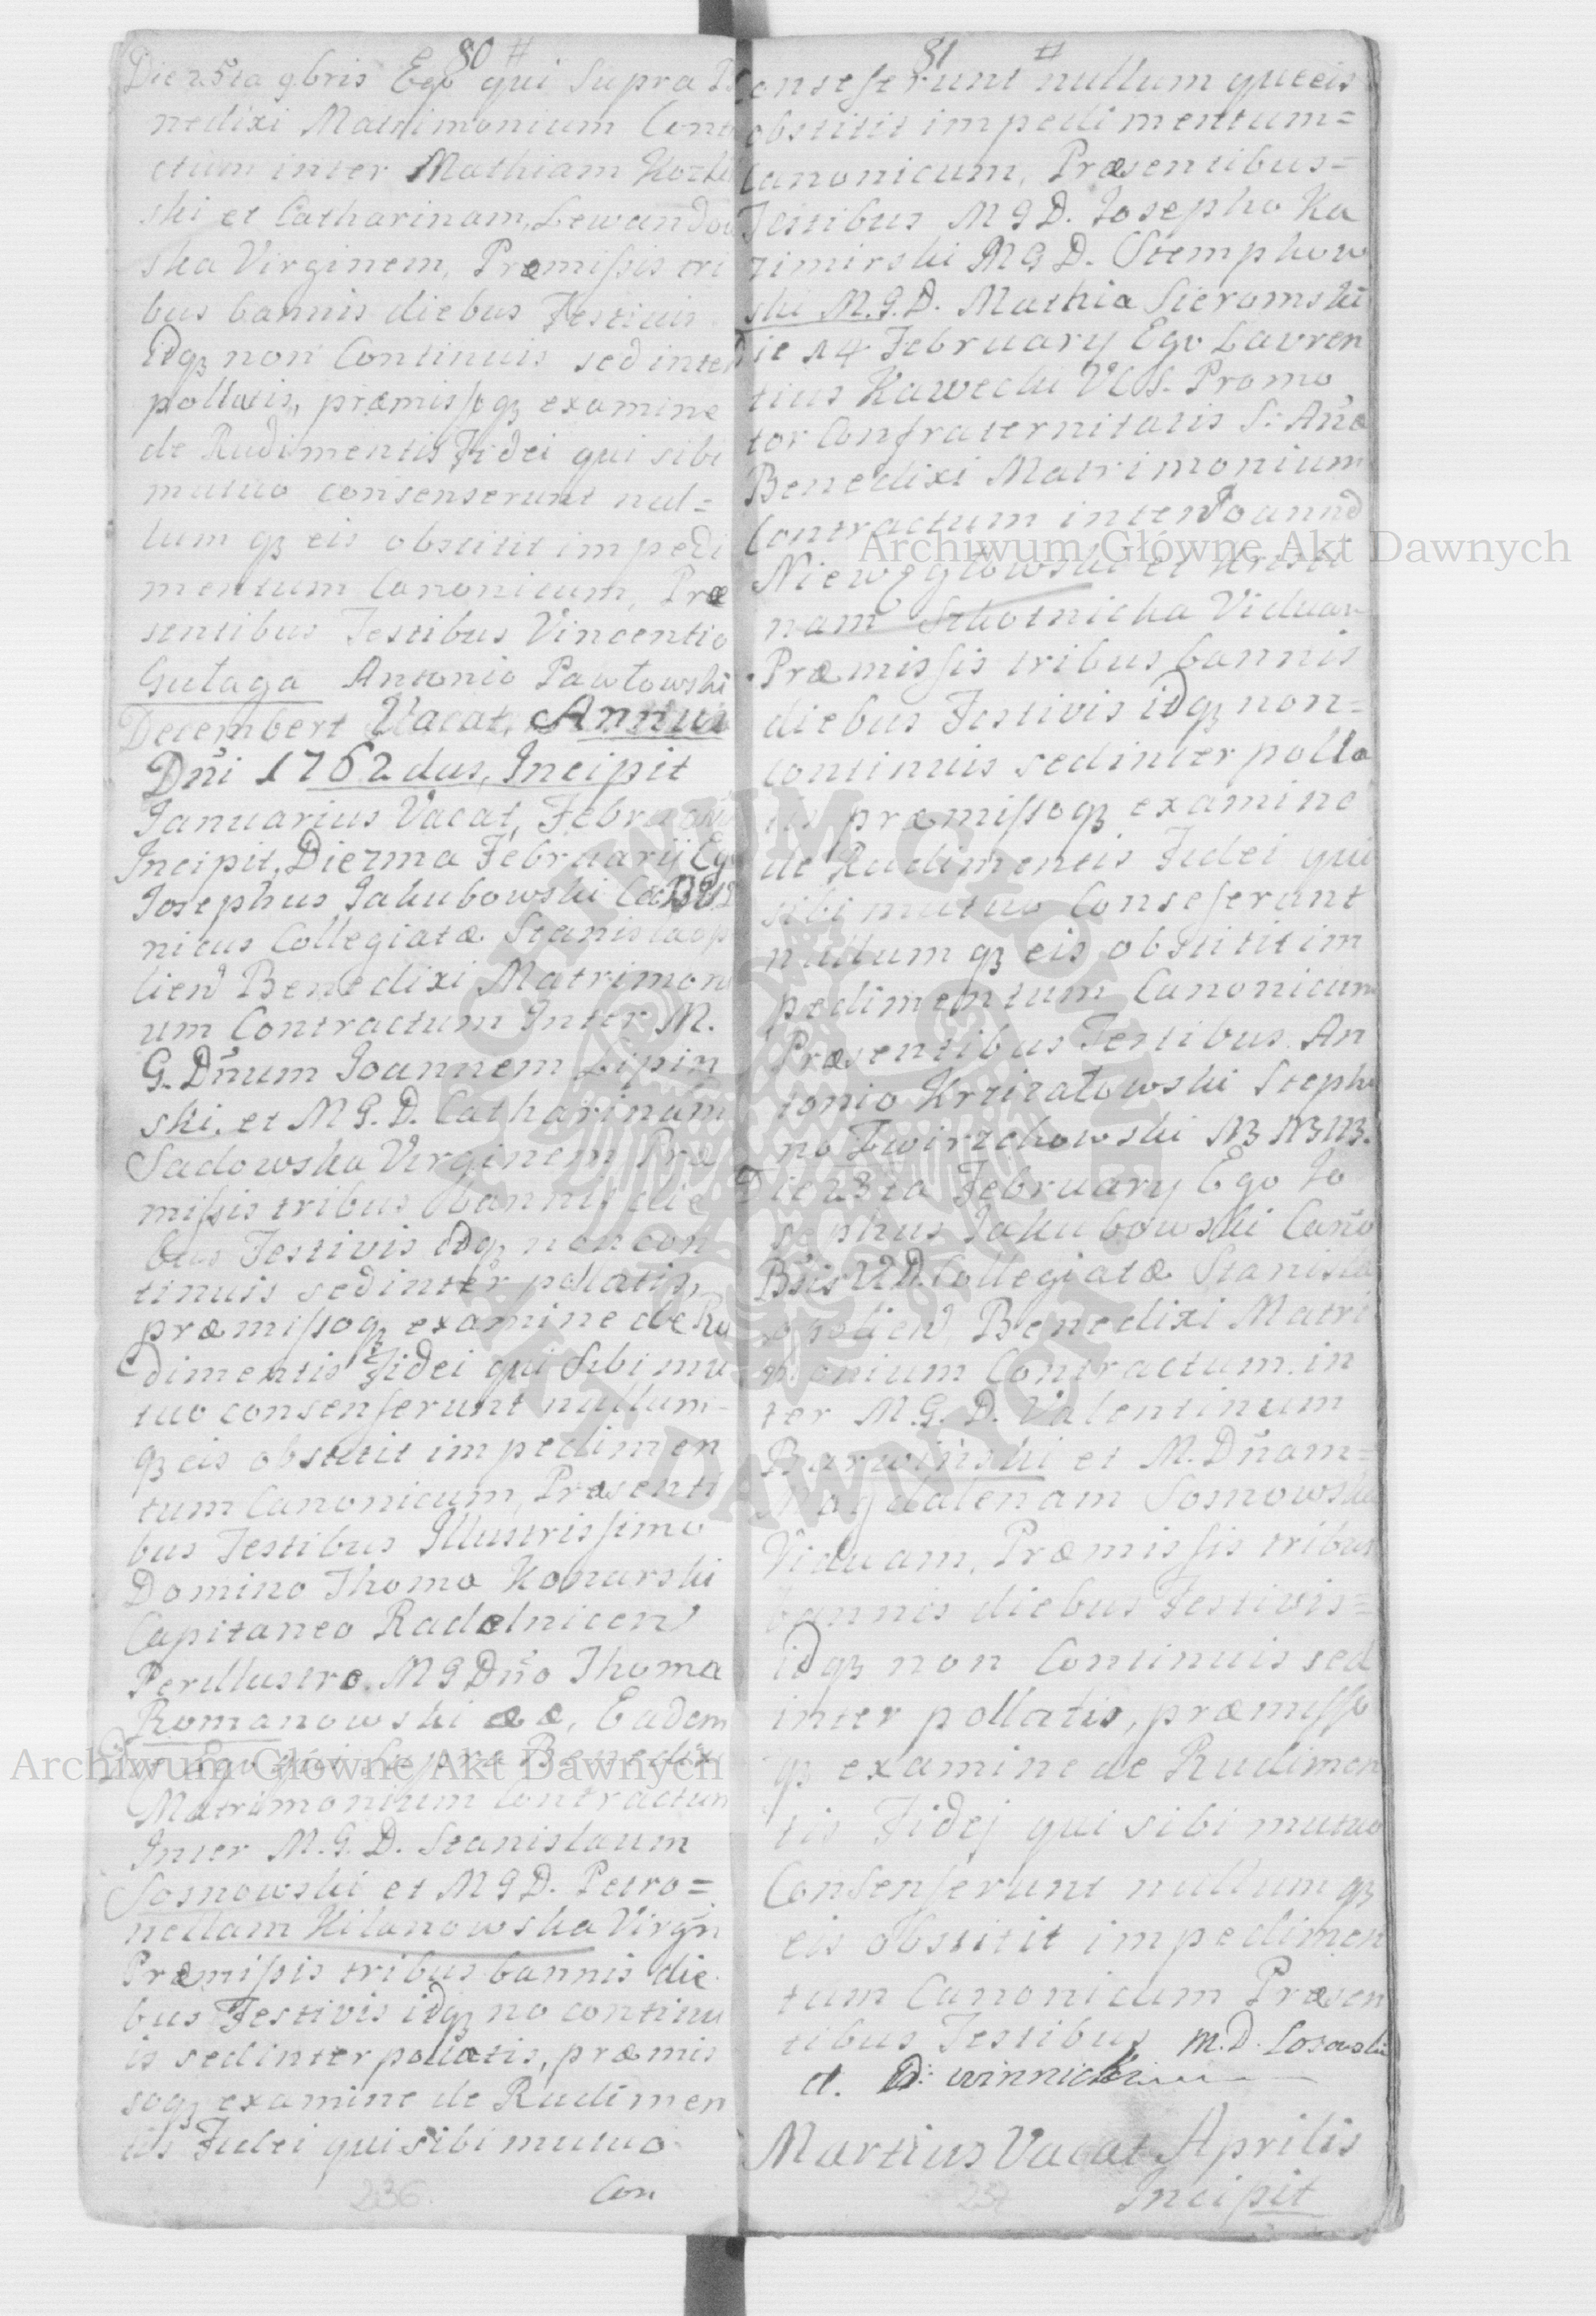 80 #
Die 25ta 9bris Ego qui Supra Be
nedixi Matrimonium Contra
ctum inter Mathiam
ski et Catharinam Lewandow
ska Virginem, Præmissis tri
bus bannis diebus Festivis
idq3 non Continuis sed inter
pollatis, præmissoq3 examine
de Rudimentis Fidei qui sibi
mutuo consenserunt nul=
lum q3 eis obstitit impedi
mentum Canonicum, Præ
sentibus Testibus Vincentio
Gułaga Antonio Pawłowski
Decembert Vacat, Annus
Dñi 1762dus, Incipit
Januarius Vacat, Februari
Incipit, Die 2ma Februarij Ego
Josephus Jakubowski
nicus Collegiatæ Stanislaop
lien Benedixi Matrimoni
um Contractum Inter M.
G. Dñum Joannem Lipin
ski, et M G. D. Catharinam
Sadowska Virginem Præ
missis tribus bannis die
bus Festivis idq3 non con
tinuis sed inter pollatis,
præmissoq3 examine de Ru
dimentis Fidei qui Sibi mu
tuo consenserunt nullum=
q3 eis obstitit impedimen
tum Canonicum, Præsenti
bus Testibus Illustrissimo
Domino Thoma Konarski
Capitaneo Radolnicen
Perillustro M G Dño Thoma
Romanowski æ æ, Eadem
Die Ego qui Supra Benedixi
Matrimonium Contractum
Inter M. G. D. Stanislaum
Sosnowski et M G D. Petro=
nellam Kilanowska Virgin
Præmissis tribus bannis die
bus Festivis idq3 no continu
is sed inter pollatis, præmis
soq3 examine de Rudimen
tis Fidei qui sibi mutuo
Con
236.
81 #
Conseserunt nullum queeis
obstitit impedimentum=
Canonicum, Præsentibus=
Testibus M G D. Josepho Ka
zimirski M G D. Stemphow
ski M. G. D. Mathia Sieromski
Die 14 February Ego Lauren
tius Kawecki Promo
tor Confraternitatis S: Añæ
Benedixi Matrimonium
Contractum inter Joannē
Niewęgłowski et Kristi
nam Szkotnicka Viduam
Præmissis tribus bannis
diebus Festivis idq3 non=
continuis sed inter polla
tis præmissoq3 examine
de Rudimentis Fidei qui
sibi mutuo Conseserunt
nullum q3 eis obstitit im
pedimentum Canonicum
Præsentibus Testibus An
tonio Krzizałowski Stepha
no Zwirzchowski
Die 23tia February Ego Jo
sephus Jakubowski Cano
Collegiatæ Stanisla
opolien, Benedixi Matri
monium Contractum in
ter M. G. D. Valentinum
Barwiński et M. Dñam=
Magdalenam Sosnowska
Viduam, Præmissis tribus
bannis diebus Festivis=
idq3 non Continuis sed
inter pollatis, præmisso
q3 examine de Rudimen
tis Fidej qui sibi mutuo
Consenserunt nullum q3
eis obstitit impedimen
tum Canonicum Præsen
tibus Testibus M. D. Losowski
d. D: winnicki
Martius Vacat Aprilis
Incipit
Archiwum Główne Akt Dawnych
Archiwum Główne Akt Dawnych
ARCHIWUM GŁÓWNE AKT DAWNYCH